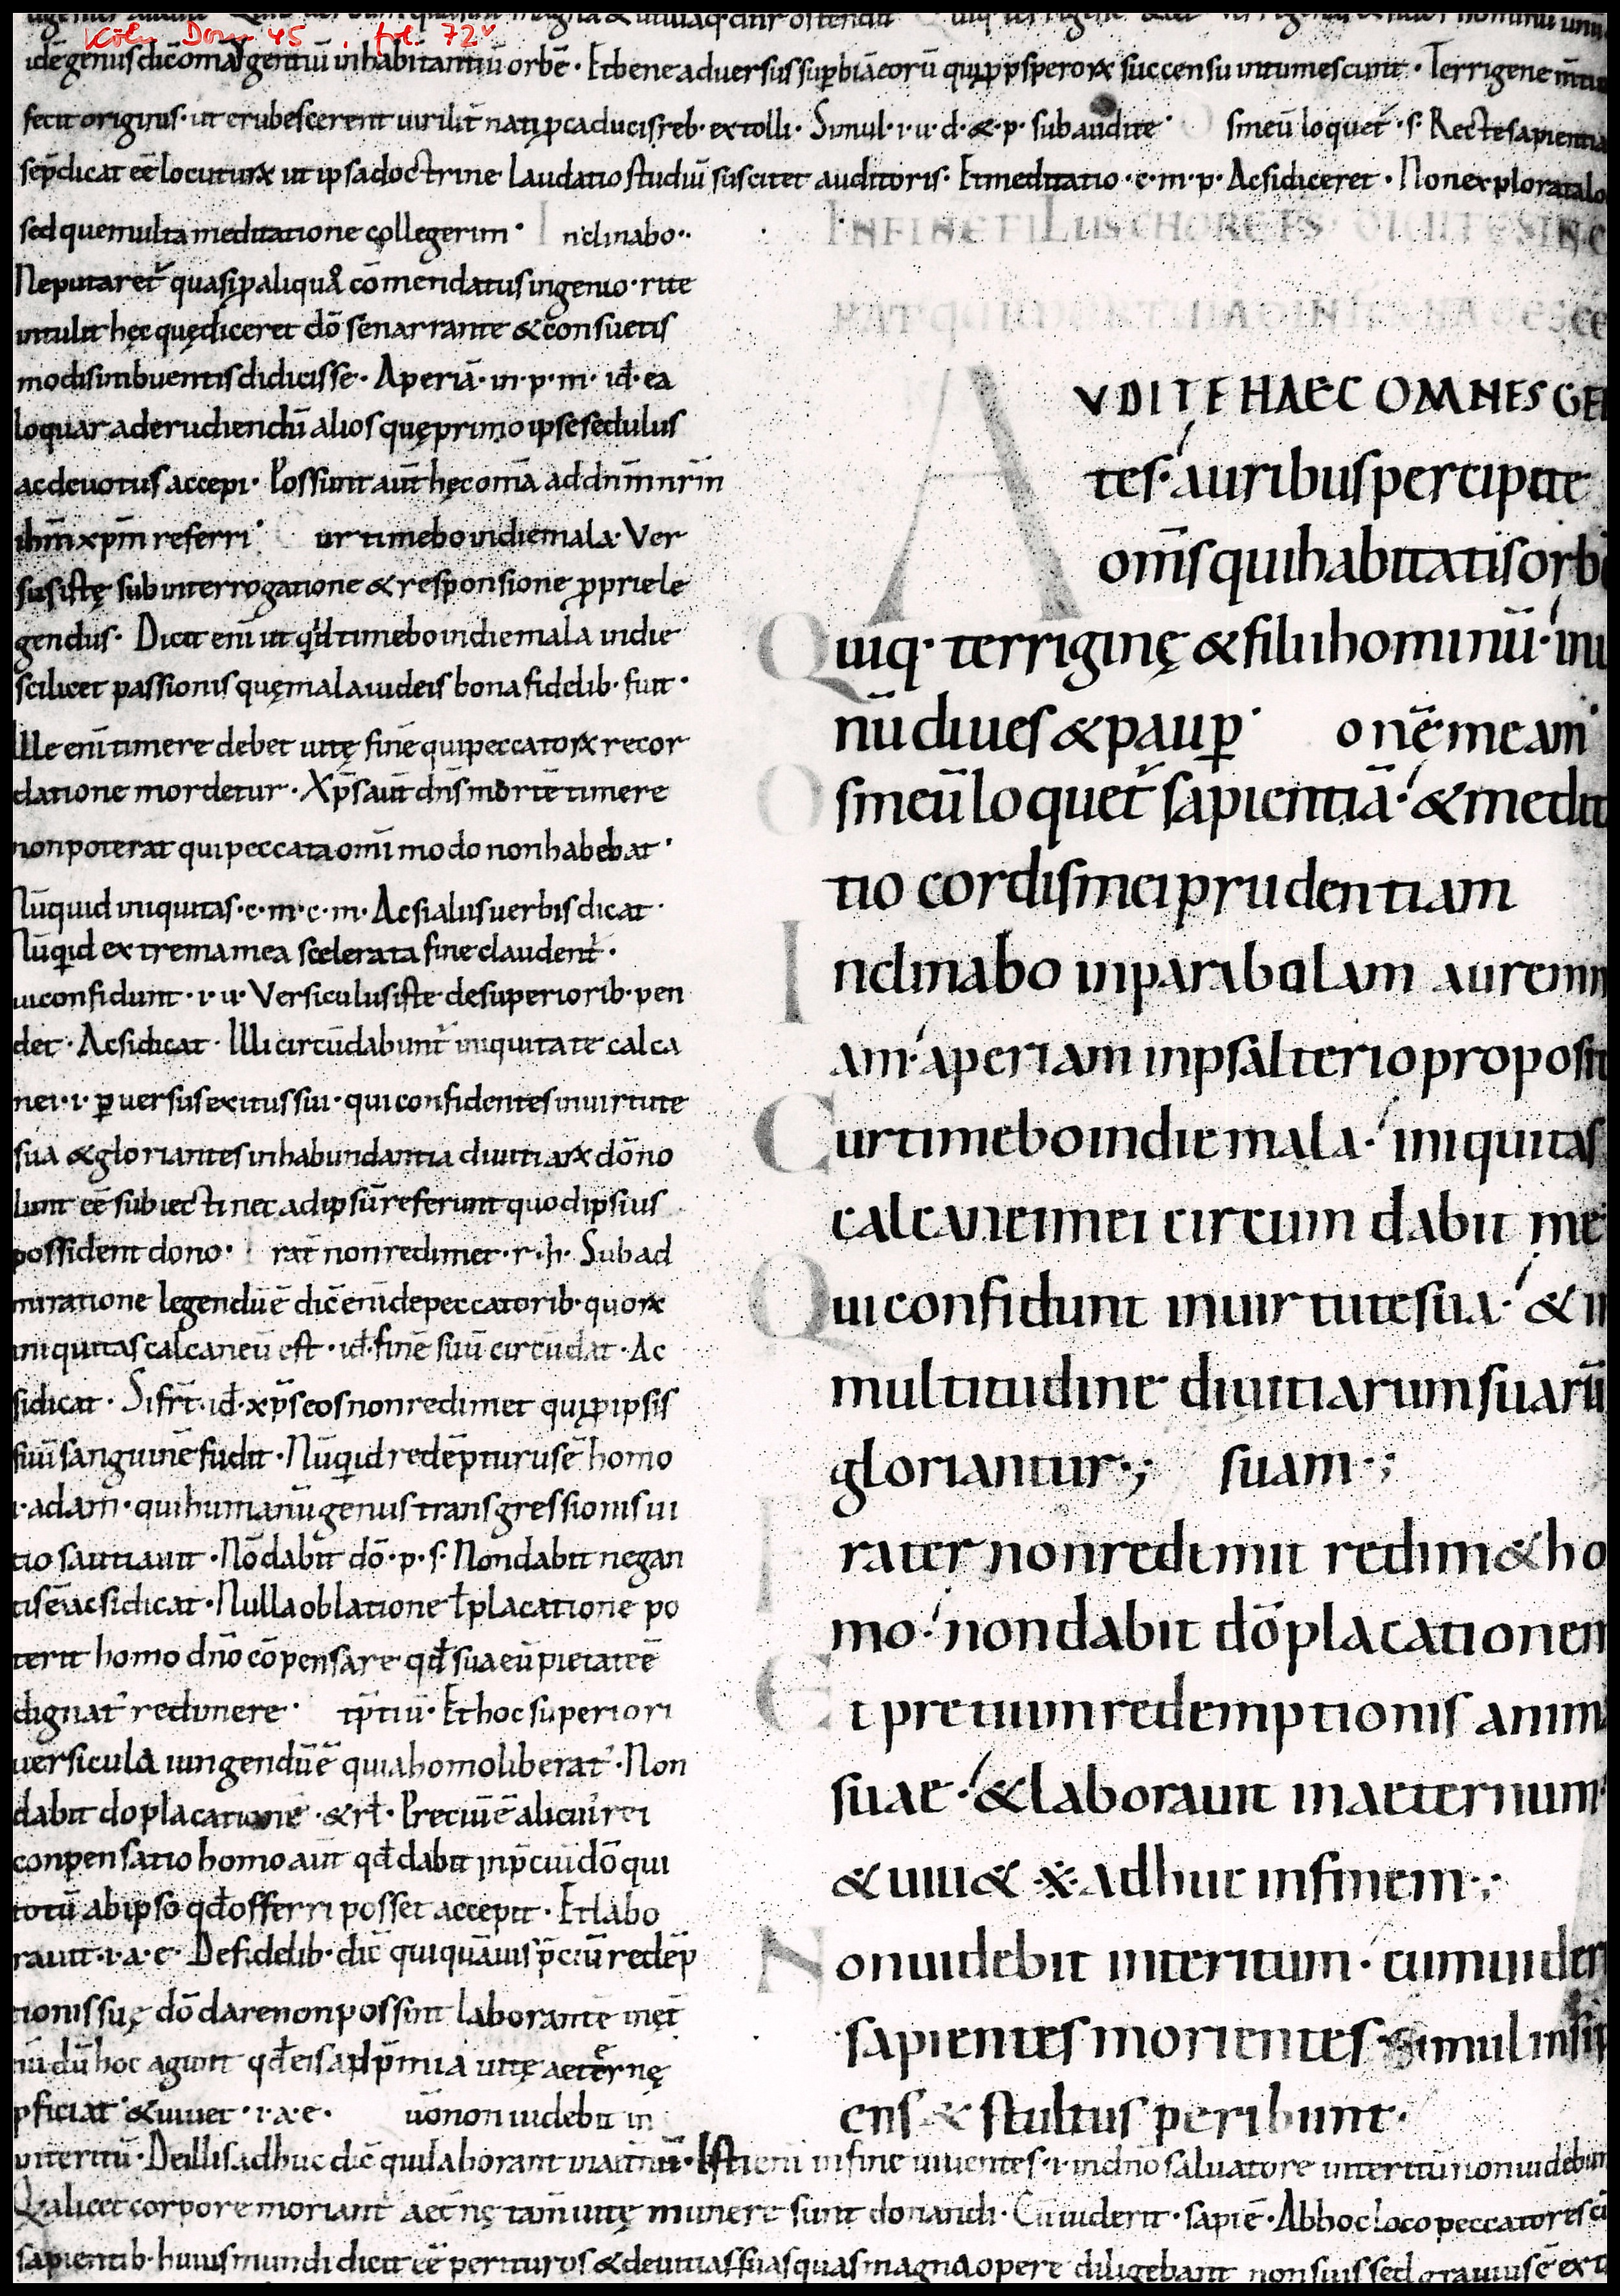 Köln Dom 45, fol. 72v
idēgenus dicōmā gentiū inhabitantiū orbē · Et bene adversus suꝑbiā eorū qui ꝓsperoꝝ successu intumescunt · Terrigene
fecit originis · ut erubescerent uirilit̄ nati ꝑ caducis reb· extolli · Simul · i · u · d · & · p · subaudite · smeū loquet̄ · s · Recte sapientia
se p̄dicat eē locuturā ut ipsa doctrine laudatio studiū suscitet auditoris · Et meditatio · c · m · p · Ac si diceret · Non explorata lo
sed que multa meditatione collegerim · I nclinabo ··
Ne putaret̄ quasi ꝑ aliquā cōmendatus ingenio · rite
intulit hęc quę diceret dō sē narrante & consuetis
modis imbuentis didicisse · Aperiā · in · p · m · id · ea
loquar ad erudiendū alios quę primo ipse sedulus
ac deuotus accepi · Possunt aūt hęc omā ad dn̄m nr̄m
ihm̄ xp̄m referri · ur timebo in die mala · Ver
sus istę sub interrogatione & responsione ꝓprie le
gendus · Dicit enī ut qd timebo in die mala in die
scilicet passionis quę mala iudeis bona fidelib· fuit ·
Ille enī timere debet uitę finē qui peccatoꝝ recor
datione mordetur · Xp̄s aūt dn̄s mortē timere
non poterat qui peccata omī modo non habebat ·
Nūquid iniquitas · c · m · c · m · Ac si aliis uerbis dicat ·
Nūqid extrema mea scelerata fine claudent̄ ·
ui confidunt · i · u · Versiculus iste de superiorib· pen
det · Ac si dicat · Illi circūdabunt̄ iniquitate calca
nei · i · ꝑuersus exitus sui · qui confidentes in uirtute
sua & gloriantes in habundantia diuitiaꝝ dō no
lunt eē subiecti nec ad ipsū referunt quod ipsius
possident dono · rat̄ non redimet · r · h · Sub ad
miratione legendū ē dic̄ enī de peccatorib· quoꝝ
iniquitas calcaneū est · id · finē suū circūdat · Ac
si dicat · Si frt̄ · id · xp̄s eos non redimet qui ꝑ ipsis
suū sanguinē fudit · Nūqid redēpturus ē homo
i · adam · qui humanū genus transgressionis ui
tio sautiauit · Nō dabit dō · p · s · Non dabit negan
tis ē ac si dicat · Nulla oblatione ł placatione po
terit homo dn̄o cōpensare qd sua eū pietate ē
dignat̄ redimere · t p̄tiū · Et hoc superiori
uersicula iungendū ē quia homo liberat̄ · Non
dabit do placationē · & rł · Preciū ē alicui rei
conpensatio homo aūt qd dabit in p̄ciū dō qui
totū ab ipso qd offerri posset accepit · Et labo
rauit · i · a · e · De fidelib· dic̄ qui quāuis p̄ciū redēp
tionis suę dō dare non possint laborant̄ in ęt̄
nū dū hoc agunt qd eis ad p̄mia uitę aeternę
ꝓficiat · & uiuet · i · a · e · uō non uidebit in
interitū · De illis adhuc dic̄ qui laborant in aet̄nū · Isti enī in fine uiuentes · i · in dn̄o saluatore interitū non uidebun
Q̄a licet corpore moriant̄ aet̄nę tam̄ uitę munere sunt donandi · Cū uiderit · sapiē · Ab hoc loco peccatores
sapientib· huius mundi dicit eē perituros & diuitias suas quas magna opere diligebant non suis sed grauius ē
VDITE HAEC OMNES GEN
tes · auribus percipite
om̄s qui habitatis orbē
Quiq· terriginę & filii hominū · in u
nū diues & pauꝑ · onē meam ·
Osmeū loquet̄ sapientiā · & medita
tio cordis mei prudentiam
Inclinabo in parabolam aurem m
am · aperiam in psalterio propositi
Cur timebo in die mala · iniquitas
calcanei mei circumdabit me
Qui confidunt in uirtute sua · & in
multitudine diuitiarum suarū
gloriantur · ; suam · ;
Frater non redimit redim & ho
mo · non dabit dō placationem
Et pretium redemptionis anim
suae · & laborauit in aeternum ·
& uiu& adhuc in finem · ;
Non uidebit interitum · cum uider
sapientes morientes · simul insip
ens & stultus peribunt ·